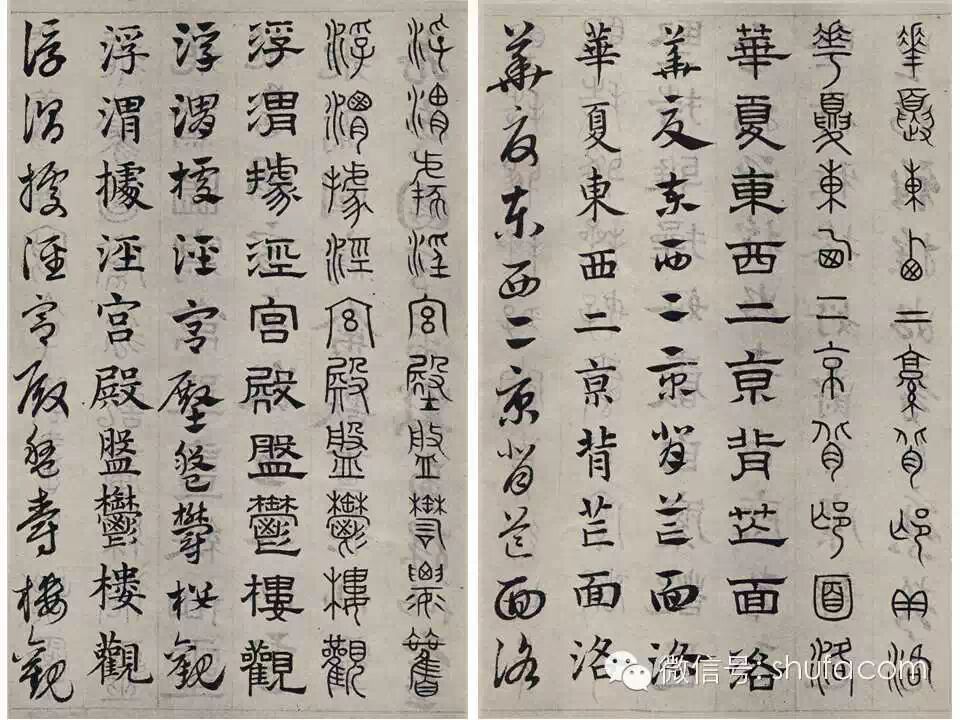 華夏東西二京背邙面洛
華夏東西二京背邙面洛
華夏東西二京背芒面洛
華夏東西二京背芒面洛
華夏東西二京背芒面洛
華夏東西二京背芒面洛
浮渭據涇宮殿盤鬱樓觀
浮渭據涇宮殿盤鬱樓觀
浮渭據涇宮殿盤鬱樓觀
浮渭據涇宮殿盤鬱樓觀
浮渭據涇宮殿盤鬱樓觀
浮渭據涇宮殿盤鬱樓觀
微信号: shufacom